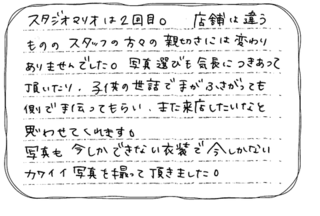 スタジオマリオは2回目。 店舗は違う
ものの スタッフの方々の親切さには変わり
ありませんでした。写真選びも気長につきあって
頂いたり、子供の世話で手がふさがっても
側で手伝ってもらい、また来店したいなと
思わせてくれます。
写真も 今しかできない衣装で今しかない
カワイイ写真を撮って頂きました。